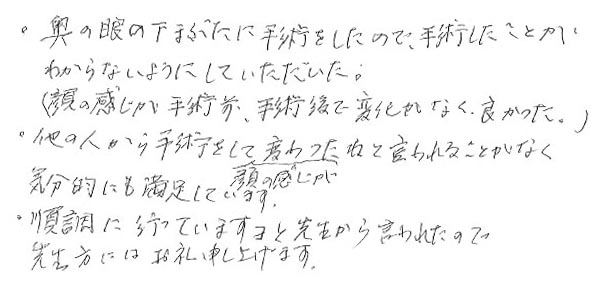 ・奥の眼の下まぶたに手術をしたので、手術したことが
わからないようにしていただいた。
(顔の感じが手術前、手術後で変化がなく良かった。)
・他の人から手術をして変わったねと言われることがなく
顔の感じが
気分的にも満足しています。
・順調に行っていますよと先生から言われたので
先生方にはお礼申し上げます。